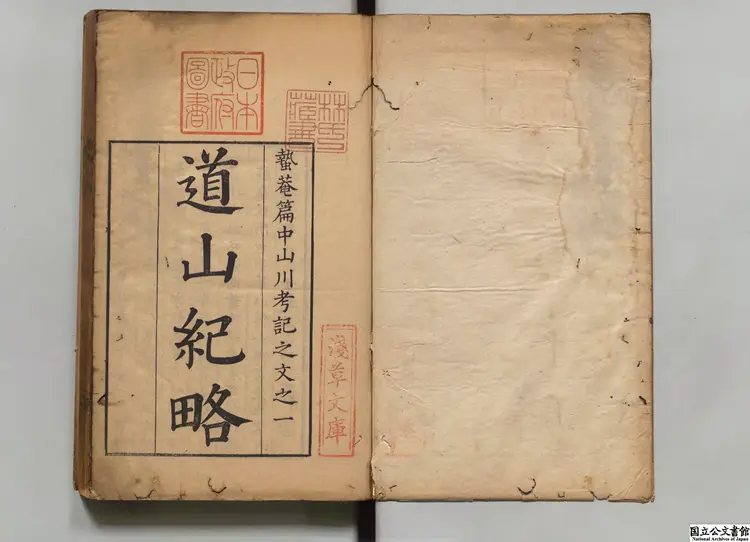 蟄菴篇中山川考記之文之一
道山紀略
日本
政府
圖書
林氏
藏書
淺草文庫
国立公文書館
National Archives of Japan